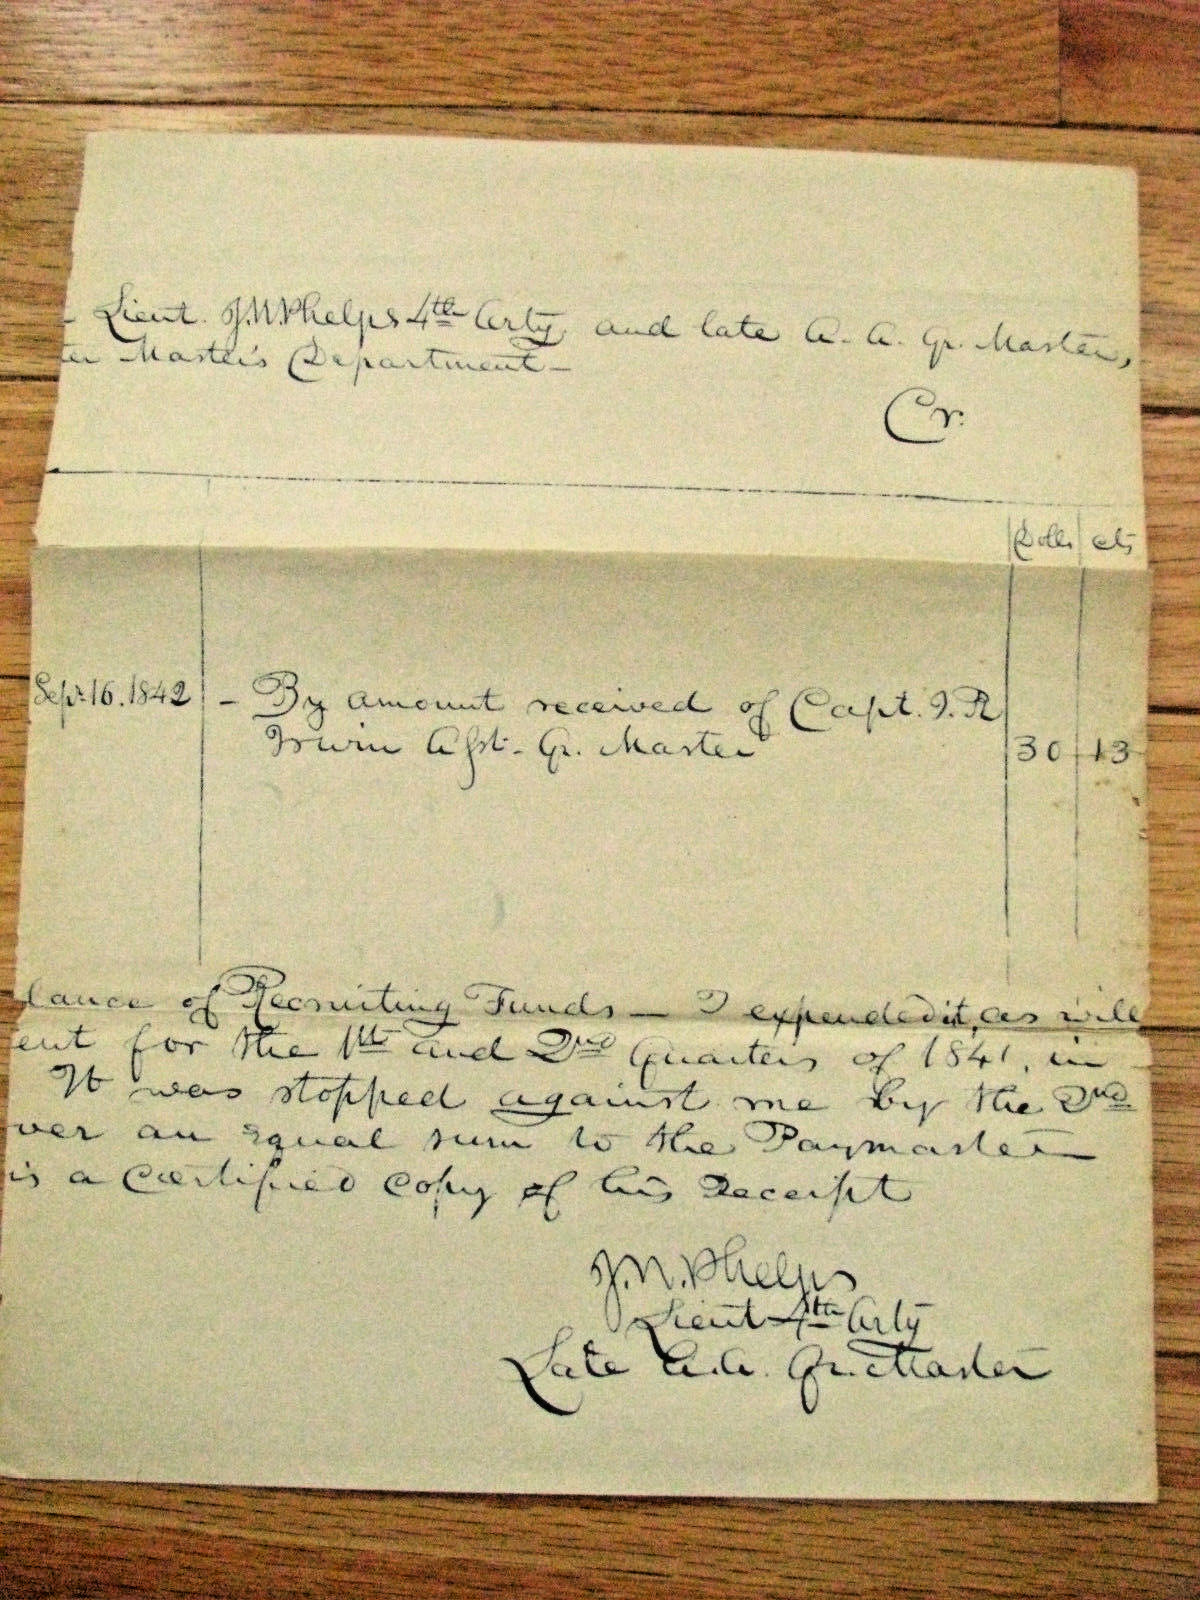 - Lieut. J.W Phelps 4th Arty, and late A. A. Qr. Master,
ter Master's Department -
Cr.
Dolls cts
Sepr 16. 1842 - By amount received of Capt. J. R
Irwin Asst. Qr. Master 30 13
lance of Recruiting Funds - I expended it, as will
ent for the 1st and 2nd Quarters of 1841, in
It was stopped against me by the 2nd
ver an equal sum to the Paymaster
is a Certified Copy of his Receipt
J.W. Phelps
Lieut 4th Arty
Late A.A. Qr. Master